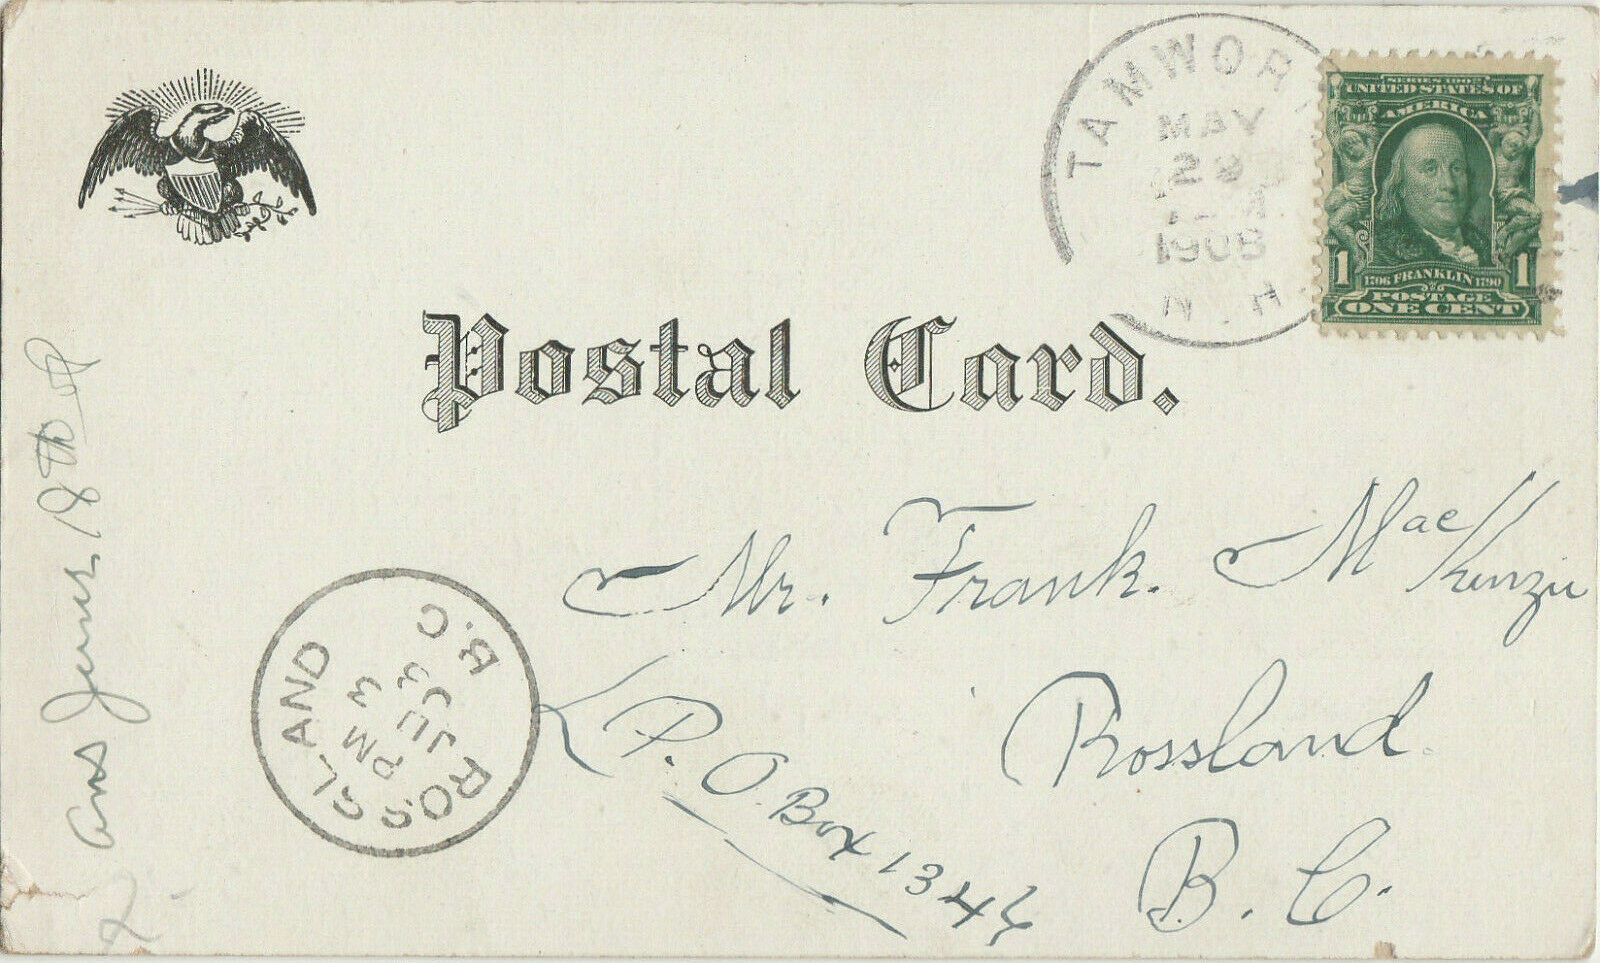 TAMWOR
MAY
29
1908
N.H.
SERIES 1902
UNITED STATES OF
AMERICA
1 1
1706 FRANKLIN 1790
POSTAGE
ONE CENT
Postal Card.
Mr. Frank. MacKenzie
Rossland.
B.C.
P.O. Box 134
ROSSLAND
PM 3
JU 3
B.C
Ans June 18th